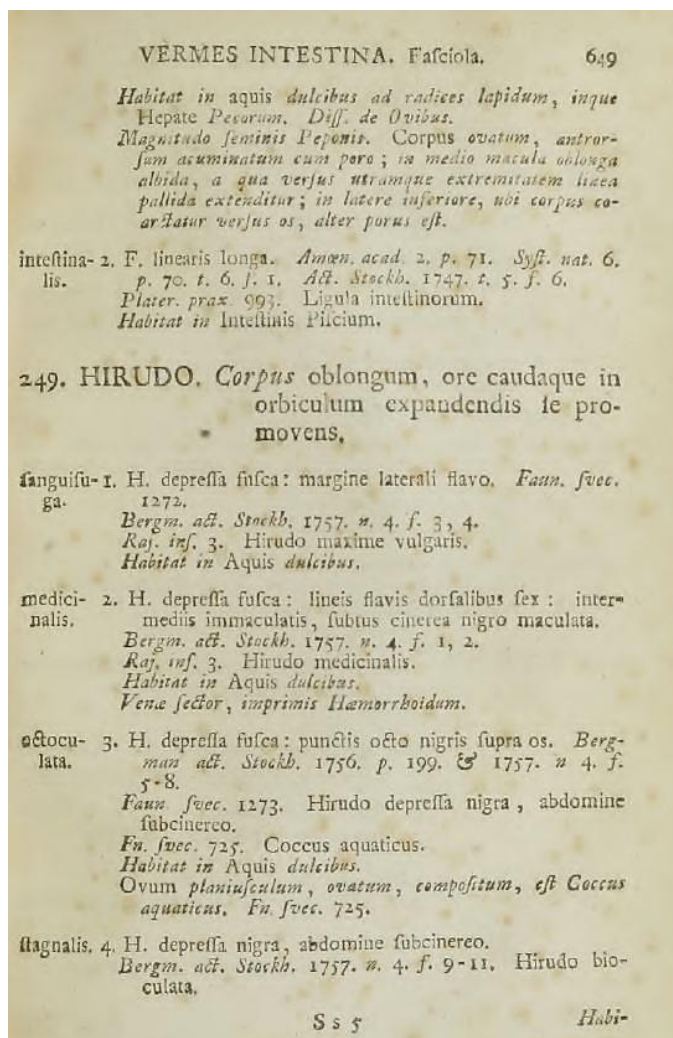 VERMES INTESTINA. Faſciola. 649
Habitat in aquis dulcibus ad radices lapidum, inque
Hepate Pecorum. Diſſ. de Ovibus.
Magnitudo ſeminis Peponis. Corpus ovatum, antror-
ſum acuminatum cum poro; in medio macula oblonga
albida, a qua verſus utramque extremitatem linea
pallida extenditur; in latere inferiore, ubi corpus co-
arctatur verſus os, alter porus eſt.
inteſtina- 2. F. linearis longa. Amœn. acad. 2. p. 71. Syſt. nat. 6.
lis. p. 70. t. 6. f. 1. Act. Stockh. 1747. t. 5. f. 6.
Plater. prax 993. Ligula inteſtinorum.
Habitat in Inteſtinis Piſcium.
249. HIRUDO. Corpus oblongum, ore caudaque in
orbiculum expandendis ſe pro-
movens.
ſanguiſu- 1. H. depreſſa fuſca: margine laterali flavo. Faun. ſvec.
ga. 1272.
Bergm. act. Stockh. 1757. n. 4. f. 3, 4.
Raj. inſ. 3. Hirudo maxime vulgaris.
Habitat in Aquis dulcibus.
medici- 2. H. depreſſa fuſca: lineis flavis dorſalibus ſex: inter-
nalis. mediis immaculatis, ſubtus cinerea nigro maculata.
Bergm. act. Stockh. 1757. n. 4. f. 1, 2.
Raj. inſ. 3. Hirudo medicinalis.
Habitat in Aquis dulcibus.
Venæ ſector, imprimis Hæmorrhoidum.
octocu- 3. H. depreſſa fuſca: punctis octo nigris ſupra os. Berg-
lata. man act. Stockh. 1756. p. 199. & 1757. n 4. f.
5-8.
Faun ſvec. 1273. Hirudo depreſſa nigra, abdomine
ſubcinereo.
Fn. ſvec. 725. Coccus aquaticus.
Habitat in Aquis dulcibus.
Ovum planiuſculum, ovatum, compoſitum, eſt Coccus
aquaticus. Fn. ſvec. 725.
ſtagnalis. 4. H. depreſſa nigra, abdomine ſubcinereo.
Bergm. act. Stockh. 1757. n. 4. f. 9-11. Hirudo bio-
culata.
S s 5 Habi-